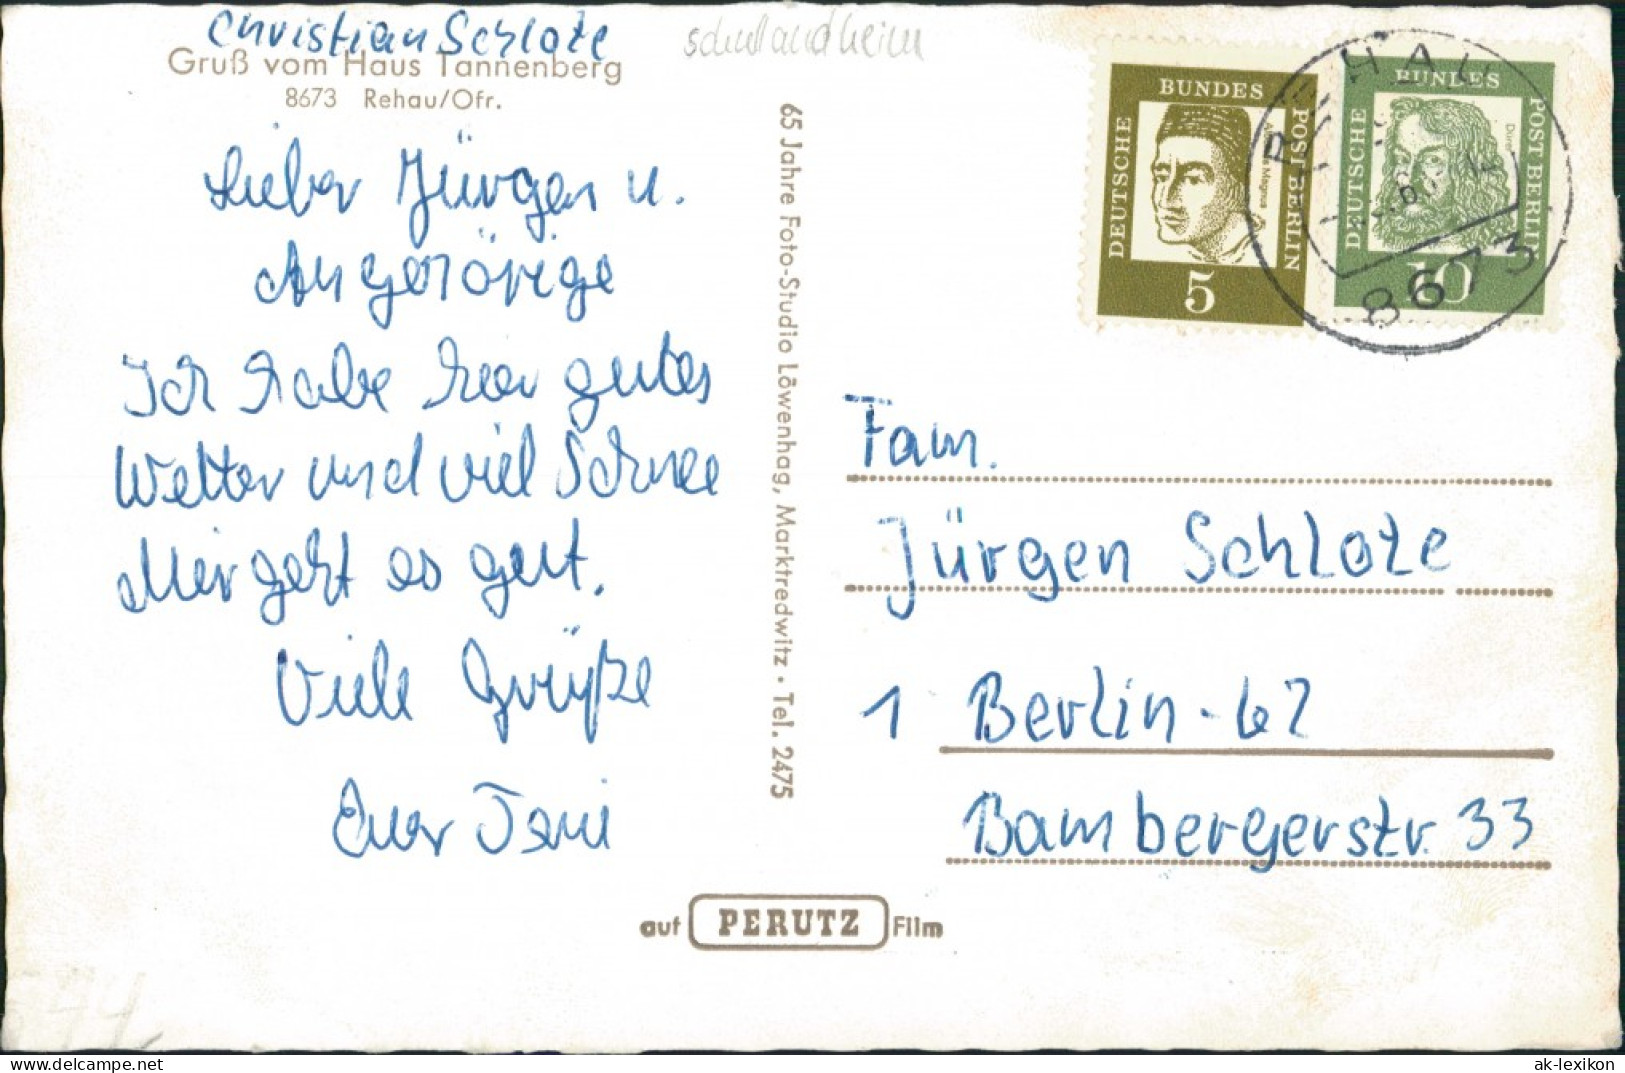 Christian Schlote
Schullandheim
Gruß vom Haus Tannenberg
8673 Rehau/Ofr.
Lieber Jürgen u.
Angehörige
Ich habe hier gutes
Wetter und viel Schnee
Mir geht es gut.
Viele Grüße
Euer
65 Jahre Foto-Studio Löwenhag, Marktredwitz · Tel. 2475
auf PERUTZ Film
DEUTSCHE BUNDES POST BERLIN
Albertus Magnus
5
DEUTSCHE BUNDES POST BERLIN
Dürer
10
REHAU
8673
Fam.
Jürgen Schlote
1 Berlin-62
Bambergerstr. 33
hansmann.com
ak-lexikon